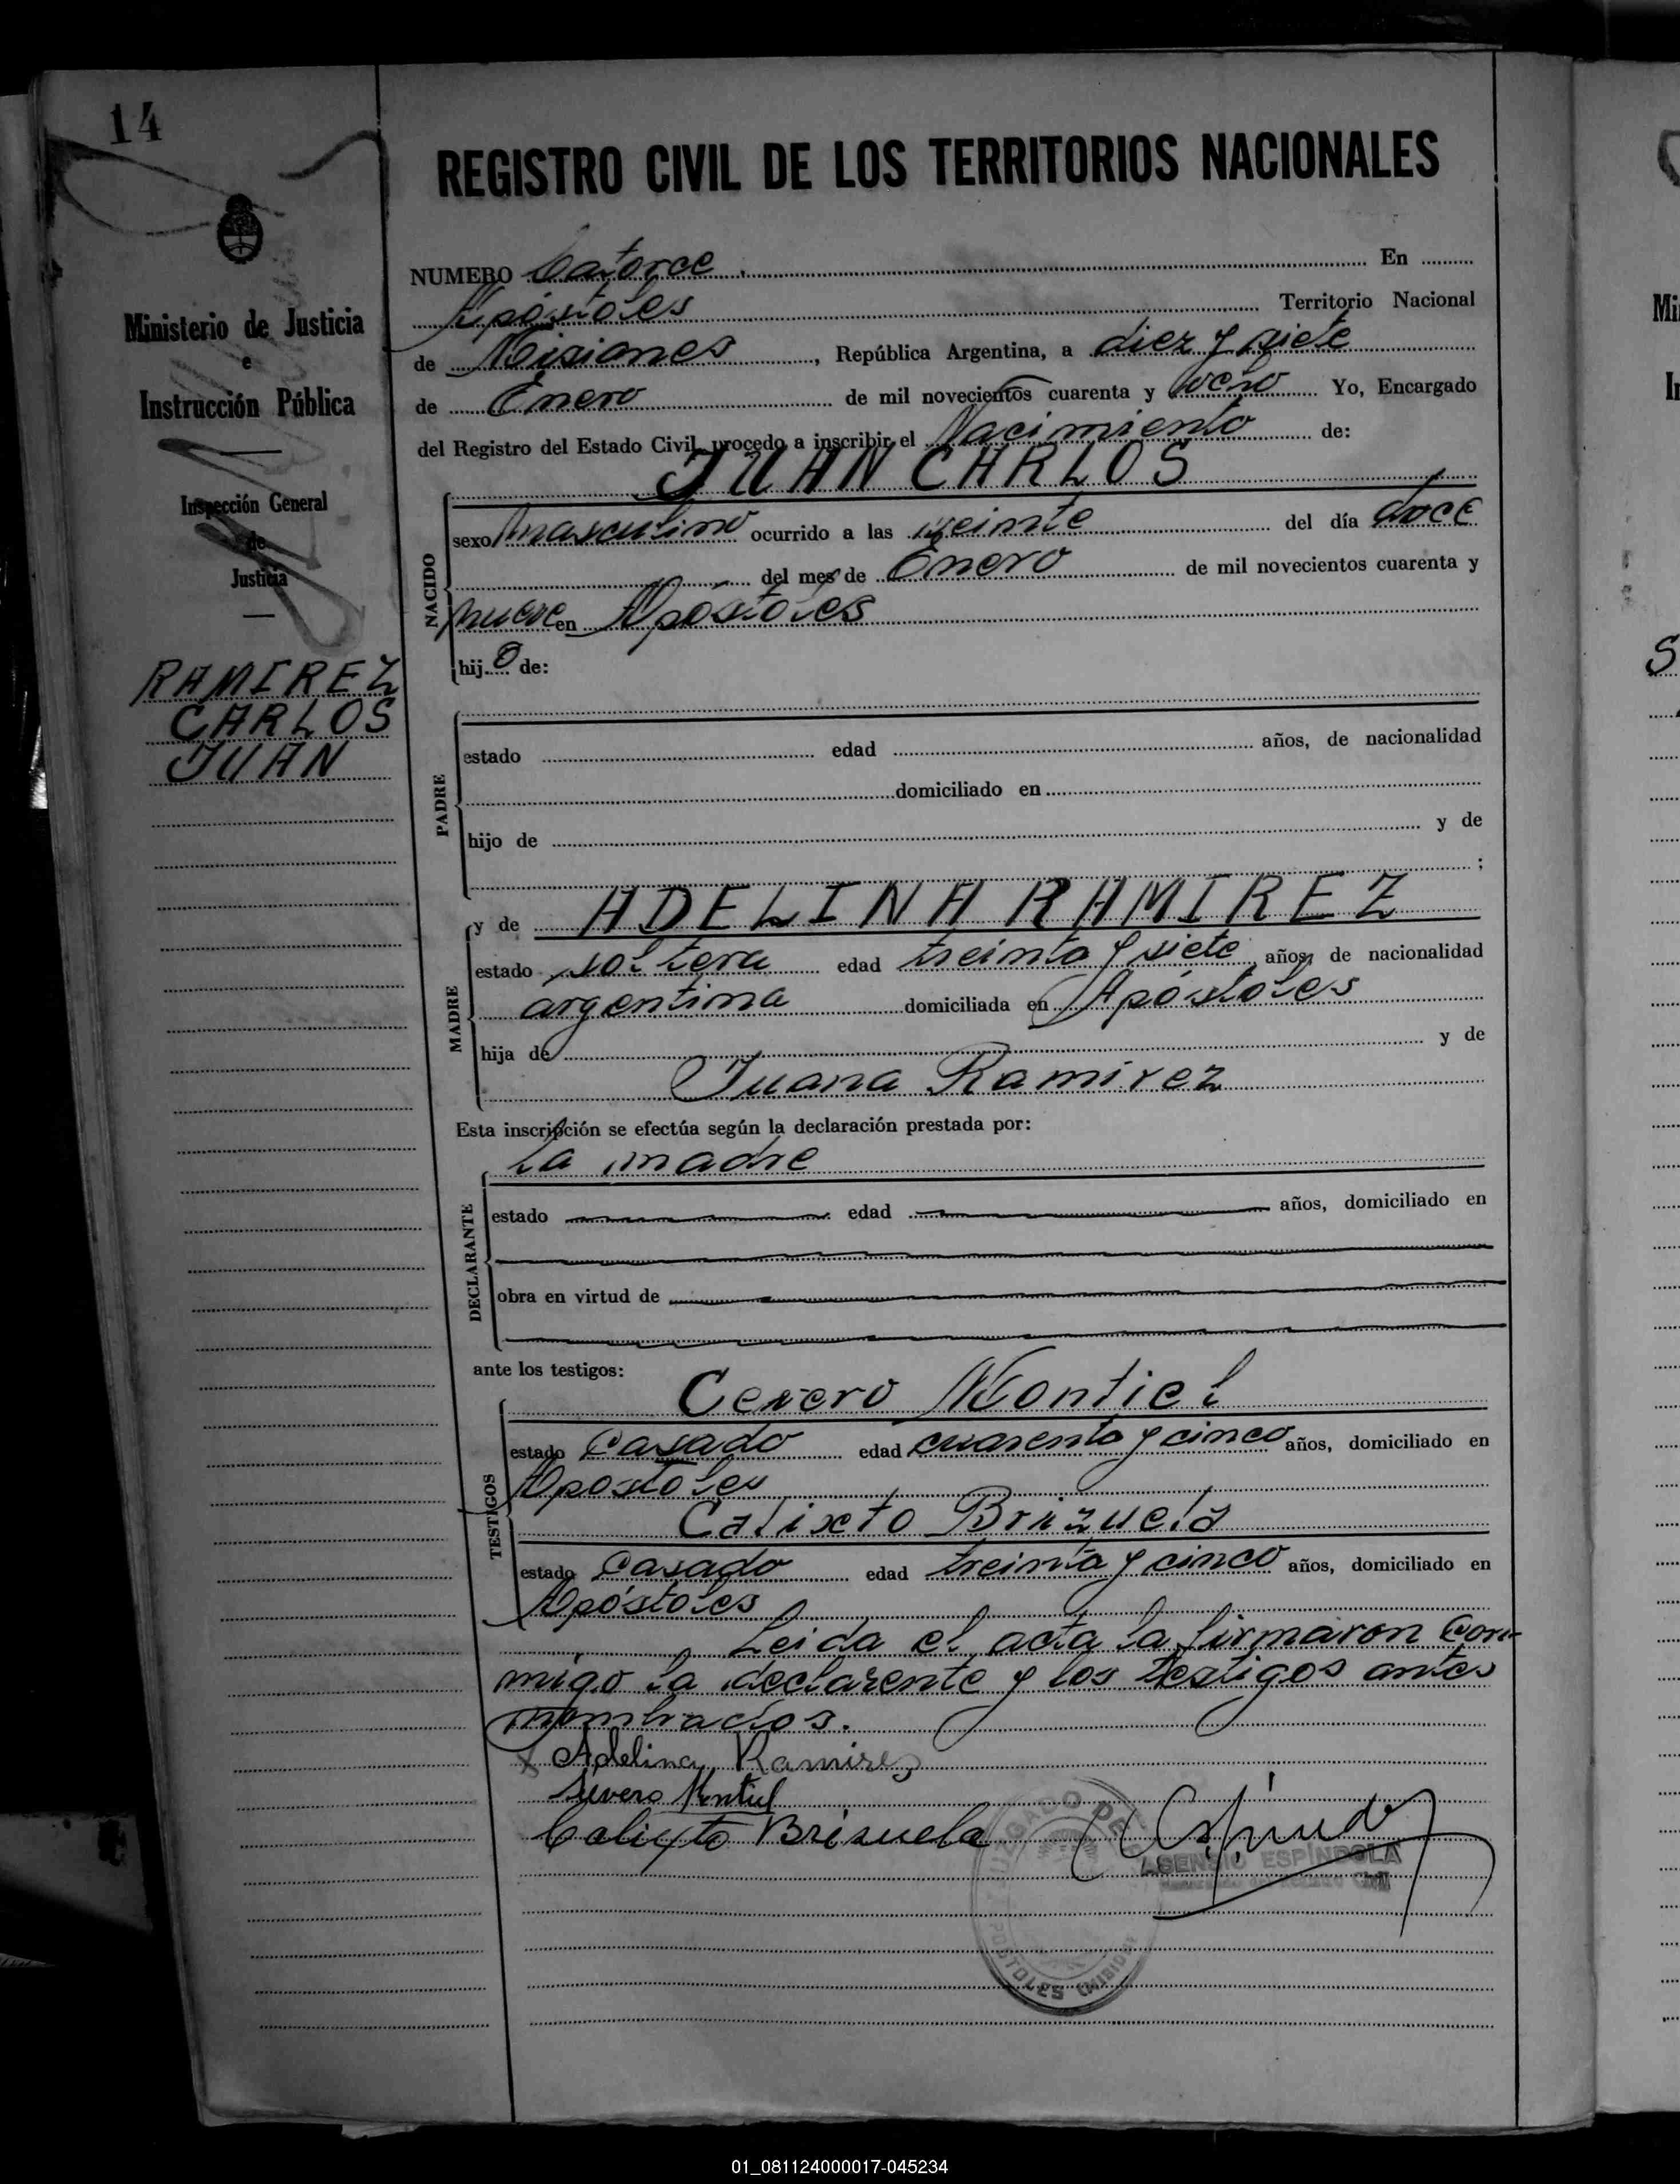 14
REGISTRO CIVIL DE LOS TERRITORIOS NACIONALES
Ministerio de Justicia
e
Instrucción Pública
Inspección General
de
Justicia
RAMIREZ
CARLOS
JUAN
NUMERO Catorce En
Apóstoles Territorio Nacional
de Misiones, República Argentina, a diez y siete
de Enero de mil novecientos cuarenta y ocho Yo, Encargado
del Registro del Estado Civil, procedo a inscribir el Nacimiento de:
JUAN CARLOS
NACIDO
sexo masculino ocurrido a las veinte del día doce
del mes de Enero de mil novecientos cuarenta y
nueve en Apóstoles
hijo de:
PADRE
estado edad años, de nacionalidad
domiciliado en
hijo de y de
;
y de ADELINA RAMIREZ
MADRE
estado soltera edad treinta y siete años, de nacionalidad
argentina domiciliada en Apóstoles
hija de y de
Juana Ramirez
Esta inscripción se efectúa según la declaración prestada por:
La madre
DECLARANTE
estado edad años, domiciliado en
obra en virtud de
ante los testigos:
Cevero Montiel
TESTIGOS
estado Casado edad cuarenta y cinco años, domiciliado en
Apostoles
Calixto Brizuela
estado Casado edad treinta y cinco años, domiciliado en
Apóstoles
Leida el acta la firmaron Con-
migo la declarente y los testigos antes
nombrados.
Adelina Ramirez
Severo Montiel
Calixto Brisuela
JUZGADO DE
ASENSIO ESPINDOLA
Civil
APOSTOLES (MISIONES)
01_081124000017-045234